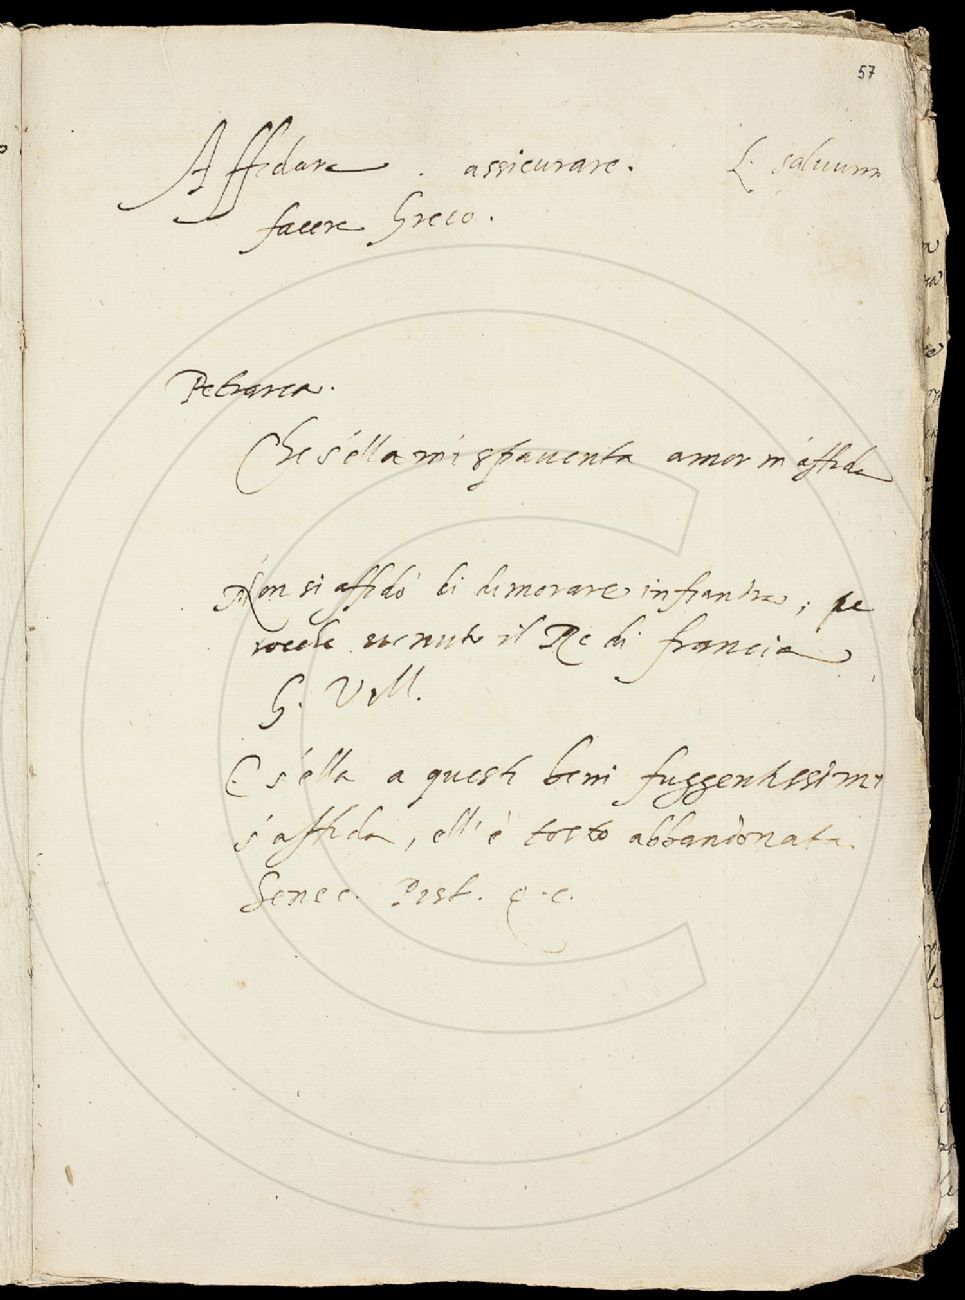 57
Affidare . assicurare. L. saluum
facere Greco.
Petrarca.
Che s'ella mi spauenta amor m'affida
Non si affidò di dimorare in fiandra, pe
rocche venuto il Re di francia
G. Vill.
E s'ella a questi beni fuggentissimi
s'affida, ell'è tosto abbandonata
Senec. Pist.